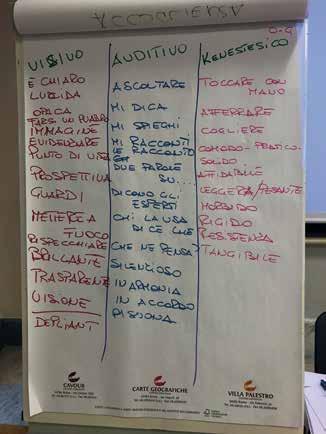 ACCOGLIENZA
VISIVO
È CHIARO
LUCIDA
OPACA
FARSI UN QUADRO
IMMAGINE
EVIDENZIARE
PUNTO DI VISTA
PROSPETTIVA
GUARDI
METTERE A
FUOCO
RISPECCHIARE
BRILLANTE
TRASPARENTE
VISIONE
DEPLIANT
AUDITIVO
ASCOLTARE
MI DICA
MI SPIEGHI
MI RACCONTI
LE RACCONTO
DUE PAROLE
SU....
DICONO GLI
ESPERTI
CHI LA USA
DICE CHE
CHE NE PENSA?
SILENZIOSO
IN ARMONIA
IN ACCORDO
RISUONA
KENESTESICO
TOCCARE CON
MANO
AFFERRARE
COGLIERE
COMODO-PRATICO-
SOLIDO
AFFIDABILE
LEGGERA/PESANTE
MORBIDO
RIGIDO
RESISTENZA
TANGIBILE
CAVOUR
CARTE GEOGRAFICHE
VILLA PALESTRO